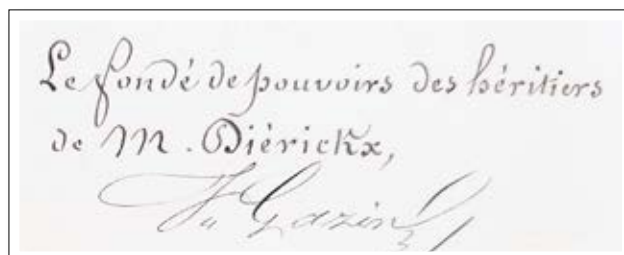 Le fondé de pouvoirs des héritiers
de M. Diérickx,
Gazin